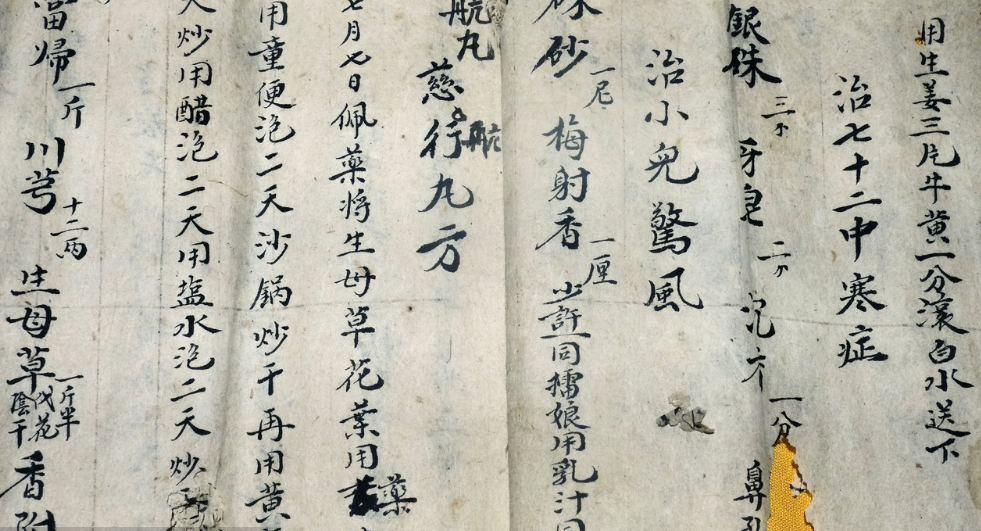 用生姜三片牛黄一分滚白水送下
治七十二中寒症
銀硃 三分 牙皂 二分 一分 鼻孔
治小兒驚風
硃砂 一厘 梅射香 一厘 少許同擂娘用乳汁同
航丸
慈航行丸方
七月七日佩藥将生母草花葉用藥
用童便泡二天沙锅炒干再用黄
天炒用醋泡二天用盐水泡二天炒
當歸 一斤 川芎 十二两 生母草 一斤半 伐花陰干 香附